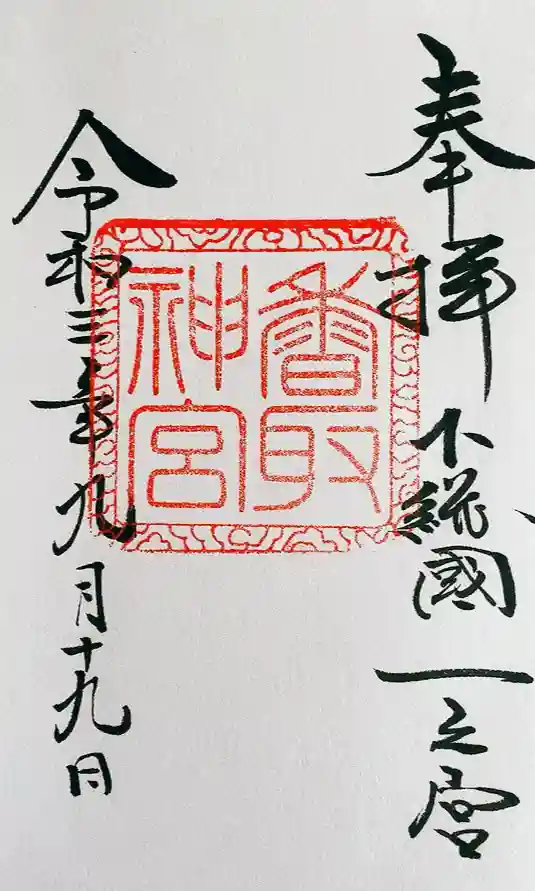 奉拝
下総國一之宮
香取神宮
令和三年九月十九日